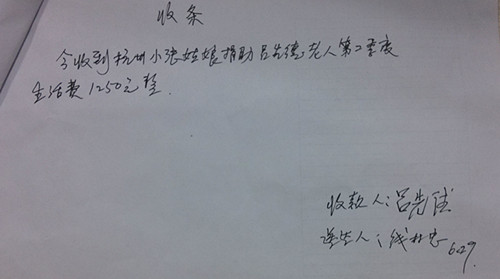 收条
今收到杭州小张姑娘捐助吕先德老人第二季度
生活费1250元整.
收款人:吕先德
送达人:钱 忠
6.29